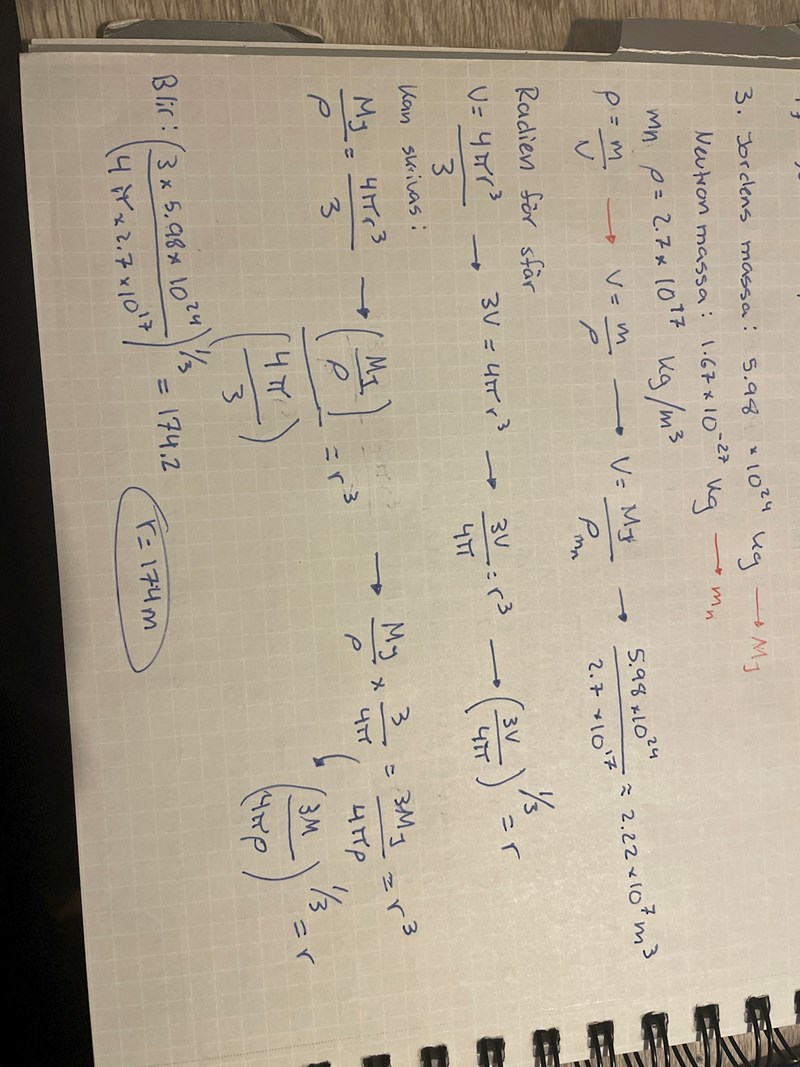 3. Jordens massa: 5.98 × 10²⁴ kg → Mj
Neutron massa: 1.67 × 10⁻²⁷ kg → mn
mn. ρ = 2.7 × 10¹⁷ kg/m³
ρ = m/V → V = m/ρ → V = Mj/ρmn → 5.98 × 10²⁴ / 2.7 × 10¹⁷ ≈ 2.22 × 10⁷ m³
Radien för sfär
V = 4πr³/3 → 3V = 4πr³ → 3V/4π = r³ → (3V/4π)^1/3 = r
kan skrivas:
Mj/ρ = 4πr³/3 → (Mj/ρ)/(4π/3) = r³ → Mj/ρ × 3/4π = 3Mj/4πρ = r³
(3M/4πρ)^1/3 = r
Blir: (3 × 5.98 × 10²⁴ / 4π × 2.7 × 10¹⁷)^1/3 = 174.2 r = 174 m